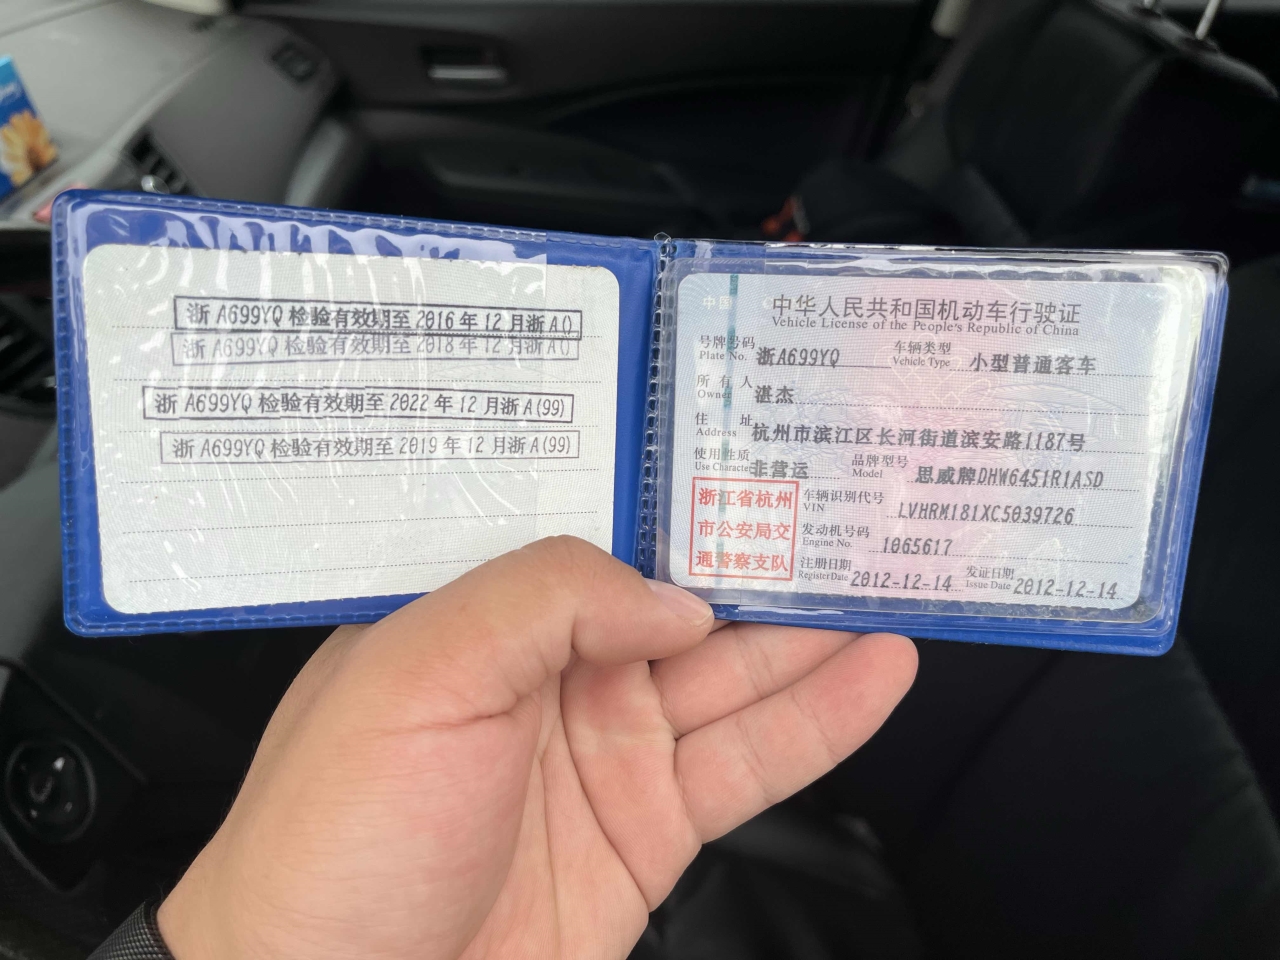 浙 A699YQ 检验有效期至 2016 年 12 月浙 A()
浙 A699YQ 检验有效期至 2018 年 12 月浙 A()
浙 A699YQ 检验有效期至 2022 年 12 月浙 A(99)
浙 A699YQ 检验有效期至 2019 年 12 月浙 A(99)
中国
中华人民共和国机动车行驶证
Vehicle License of the People's Republic of China
号牌号码 浙A699YQ 车辆类型 小型普通客车
Plate No. Vehicle Type
所有人 湛杰
Owner
住址 杭州市滨江区长河街道滨安路1187号
Address
使用性质 非营运 品牌型号 思威牌DHW6451R1ASD
Use Character Model
浙江省杭州
市公安局交
通警察支队
车辆识别代号 LVHRM181XC5039726
VIN
发动机号码 1065617
Engine No.
注册日期 2012-12-14 发证日期 2012-12-14
Register Date Issue Date